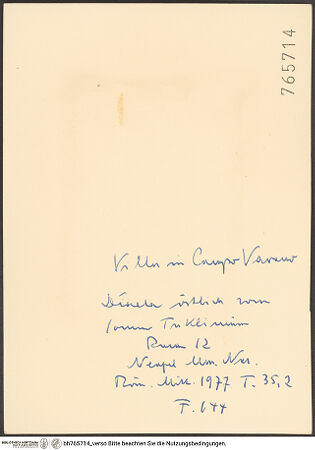 765714
Villa in Campo Varano
Diaeta östlich vom
Sommer Triklinium
Raum 12
Neapel Mus. Naz.
Röm. Mitt. 1977 T. 35,2
F. 644
bh765714_verso Bitte beachten Sie die Nutzungsbedingungen.